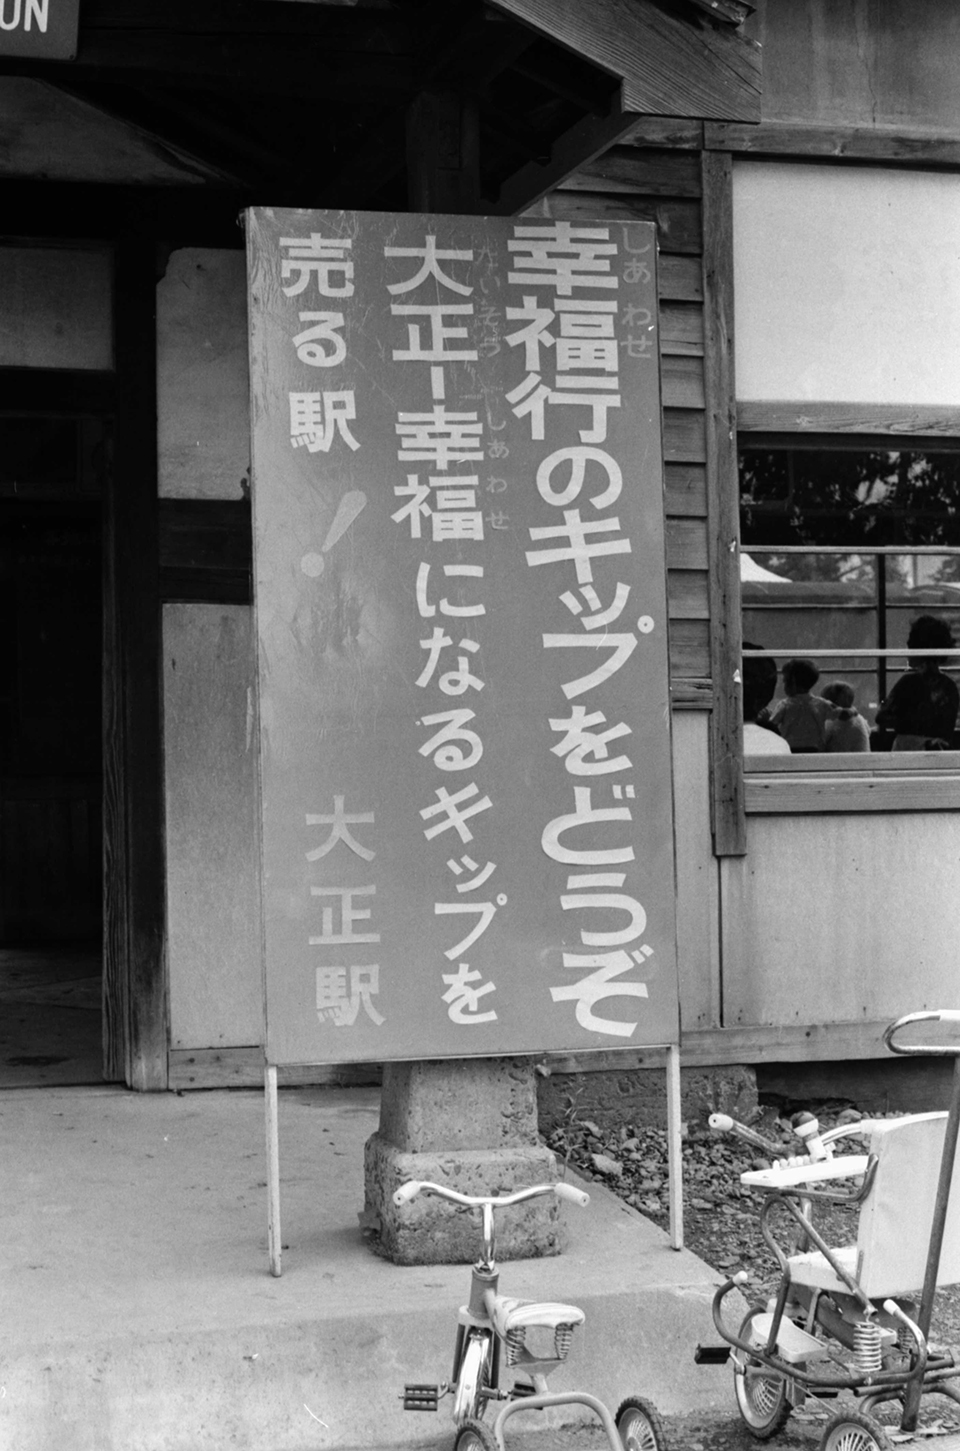 UN
しあわせ
幸福行のキップをどうぞ
たいそう しあわせ
大正ー幸福になるキップを
売る駅！ 大正駅